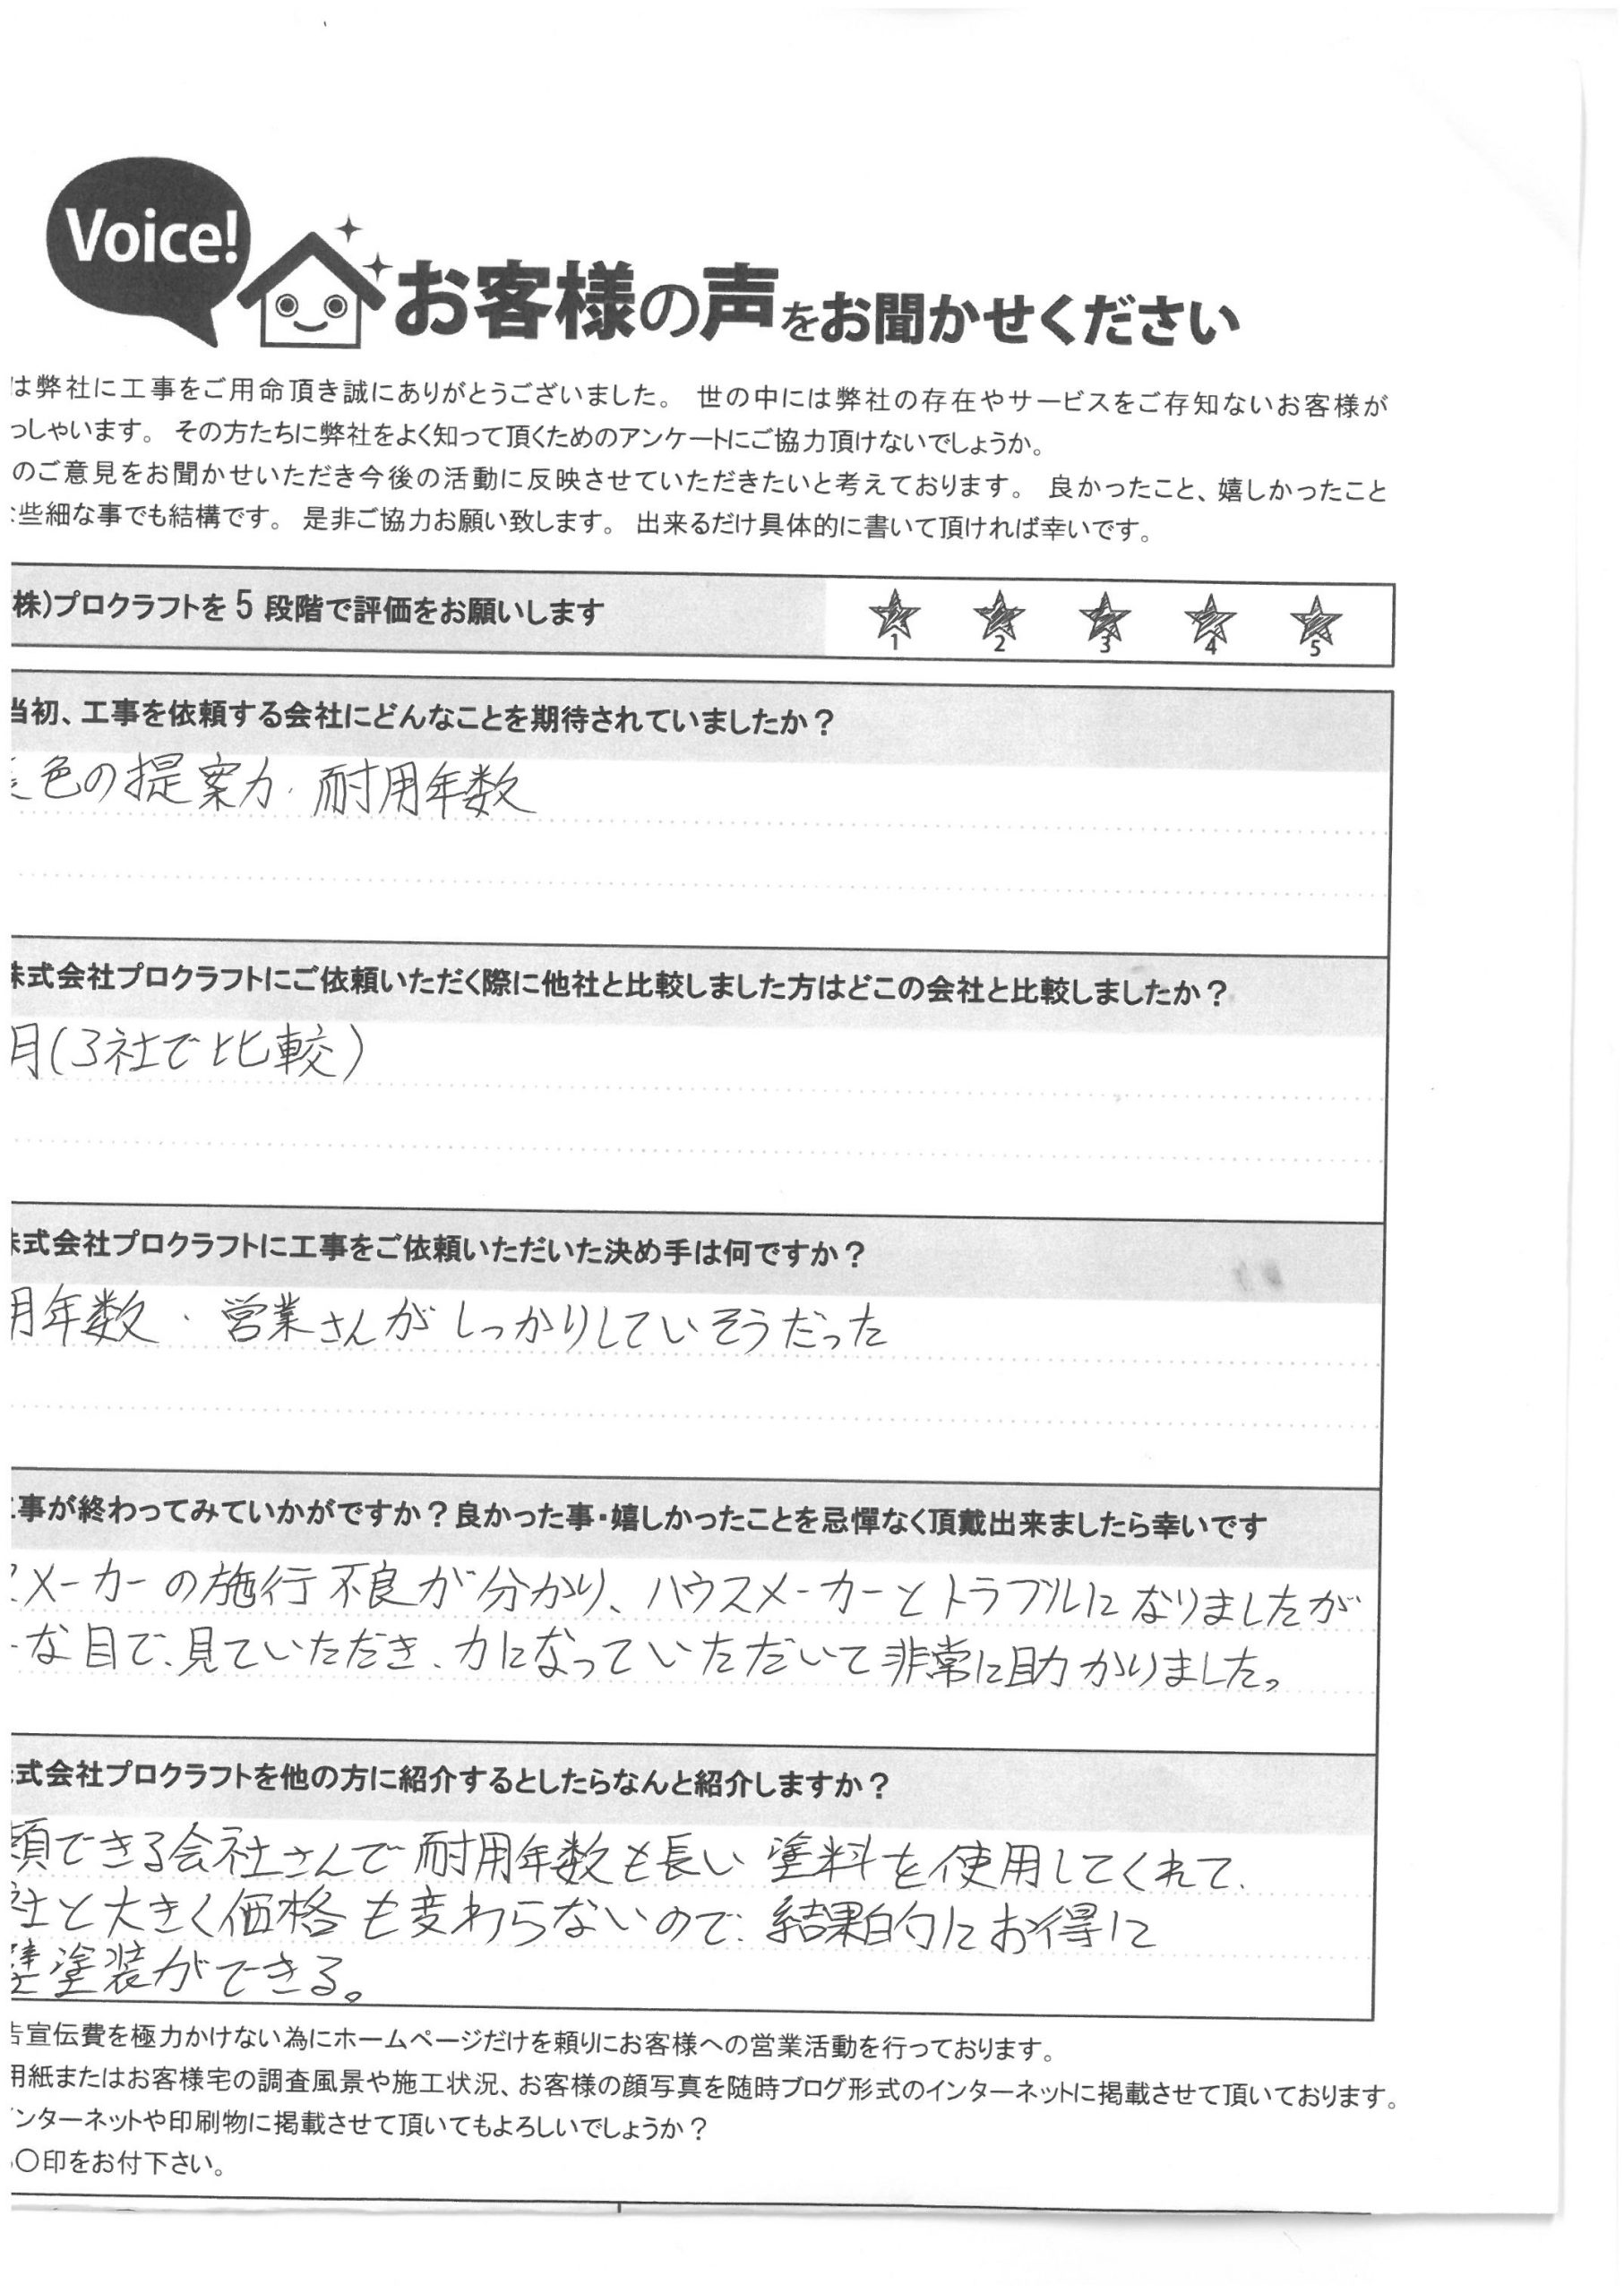 Voice!
お客様の声をお聞かせください
は弊社に工事をご用命頂き誠にありがとうございました。 世の中には弊社の存在やサービスをご存知ないお客様が
っしゃいます。 その方たちに弊社をよく知って頂くためのアンケートにご協力頂けないでしょうか。
のご意見をお聞かせいただき今後の活動に反映させていただきたいと考えております。 良かったこと、嬉しかったこと
些細な事でも結構です。 是非ご協力お願い致します。 出来るだけ具体的に書いて頂ければ幸いです。
株)プロクラフトを5段階で評価をお願いします
1 2 3 4 5
当初、工事を依頼する会社にどんなことを期待されていましたか?
色の提案力、耐用年数
株式会社プロクラフトにご依頼いただく際に他社と比較しました方はどこの会社と比較しましたか?
月(3社で比較)
株式会社プロクラフトに工事をご依頼いただいた決め手は何ですか?
用年数、営業さんがしっかりしていそうだった
工事が終わってみていかがですか?良かった事・嬉しかったことを忌憚なく頂戴出来ましたら幸いです
スメーカーの施行不良が分かり、ハウスメーカーとトラブルになりましたが
な目で、見ていただき、力になっていただいて非常に助かりました。
式会社プロクラフトを他の方に紹介するとしたらなんと紹介しますか?
頼できる会社さんで耐用年数も長い塗料を使用してくれて、
社と大きく価格も変わらないので、結果的にお得に
壁塗装ができる。
告宣伝費を極力かけない為にホームページだけを頼りにお客様への営業活動を行っております。
用紙またはお客様宅の調査風景や施工状況、お客様の顔写真を随時ブログ形式のインターネットに掲載させて頂いております。
インターネットや印刷物に掲載させて頂いてもよろしいでしょうか?
〇印をお付下さい。